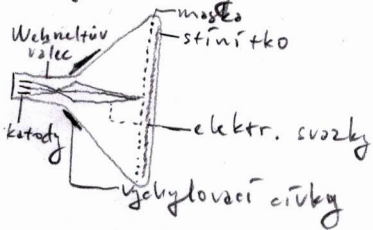 maska
stínítko
Wehneltův
válec
katody
elektr. svazky
vychylovací cívky